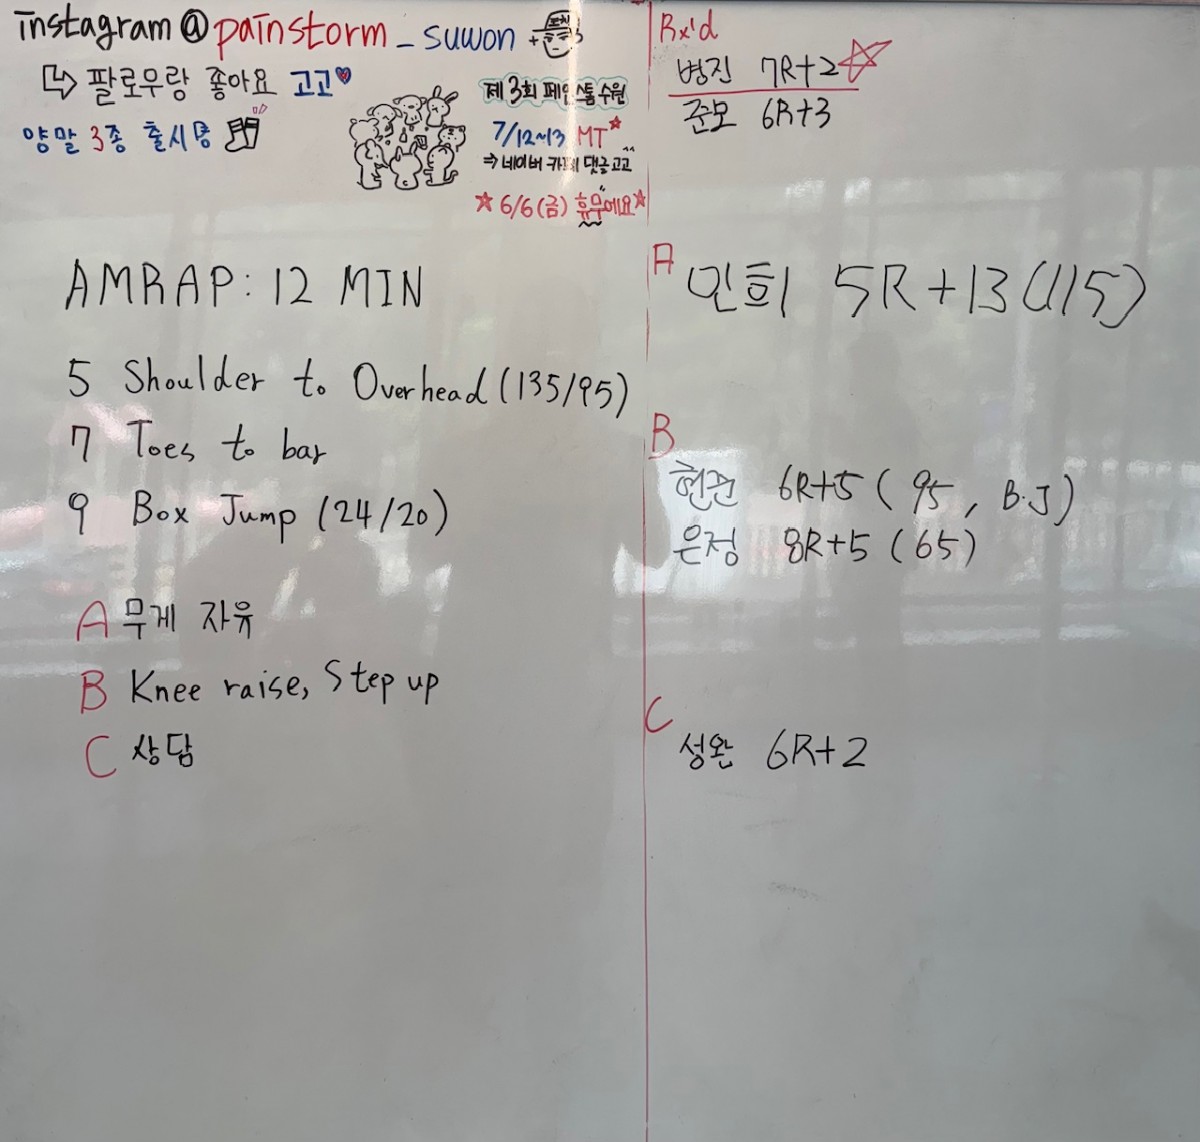 instagram@painstorm_suwon
팔로우랑 좋아요 고고
양말 3종 출시
제3회 페인스톰수원
7/12~13 MT
⇒ 네이버 카페 댓글고고
☆ 6/6(금) 휴무에요☆
AMRAP: 12 MIN
5 Shoulder to Overhead (135/95)
7 Toes to bar
9 Box Jump (24/20)
A 무게 자유
B Knee raise, Step up
C 상담
Rx'd
병진 7R+2
준모 6R+3
A
민희 5R+13(115)
B
현권 6R+5 (95, B.J)
은정 8R+5 (65)
C
성완 6R+2